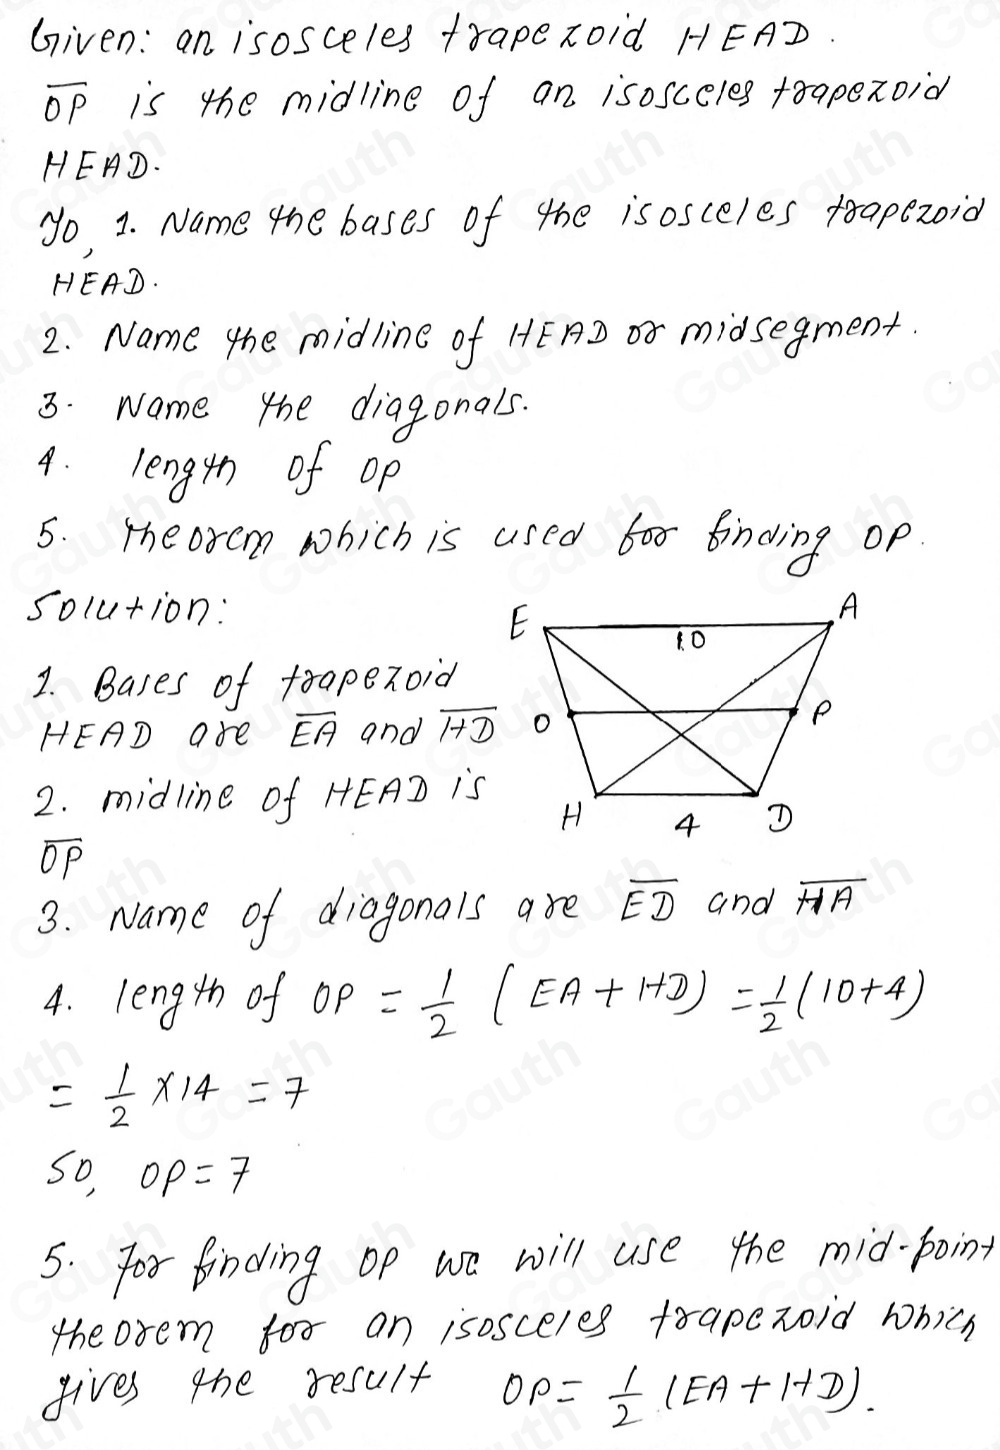 Given: an isosceles trapezoid HEAD.
OP is the midline of an isosceles trapezoid
HEAD.
To, 1. Name the bases of the isosceles trapezoid
HEAD.
2. Name the midline of HEAD or midsegment.
3. Name the diagonals.
4. length of OP
5. Theorem which is used for finding OP.
Solution:
E
A
10
O
P
H
4
D
1. Bases of trapezoid
HEAD are EA and HD
2. midline of HEAD is
OP
3. Name of diagonals are ED and HA
4. length of OP = 1/2 (EA + HD) = 1/2 (10+4)
= 1/2 × 14 = 7
So, OP = 7
5. For finding OP we will use the mid-point
theorem for an isosceles trapezoid which
gives the result OP = 1/2 (EA + HD).
Gauth